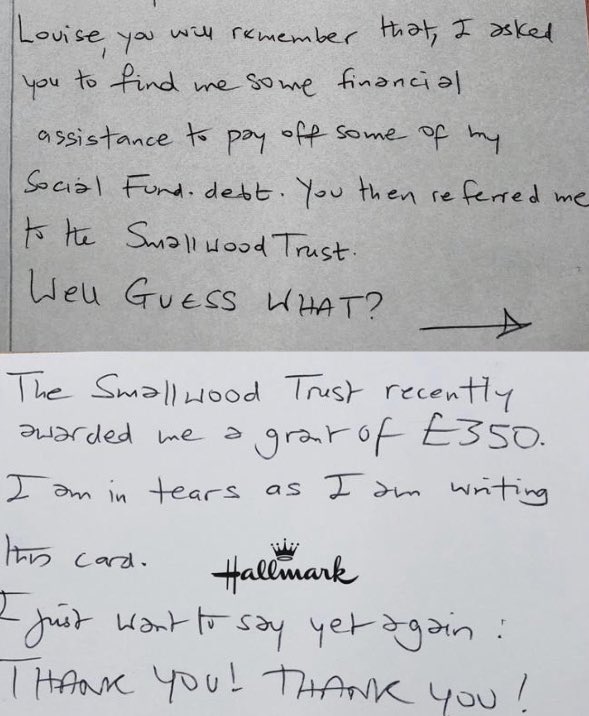 Louise, you will remember that, I asked
you to find me some financial
assistance to pay off some of my
Social Fund. debt. You then referred me
to the Smallwood Trust.
Well GUESS WHAT?
The Smallwood Trust recently
awarded me a grant of £350.
I am in tears as I am writing
this card.
Hallmark
I just want to say yet again :
THANK YOU! THANK YOU!